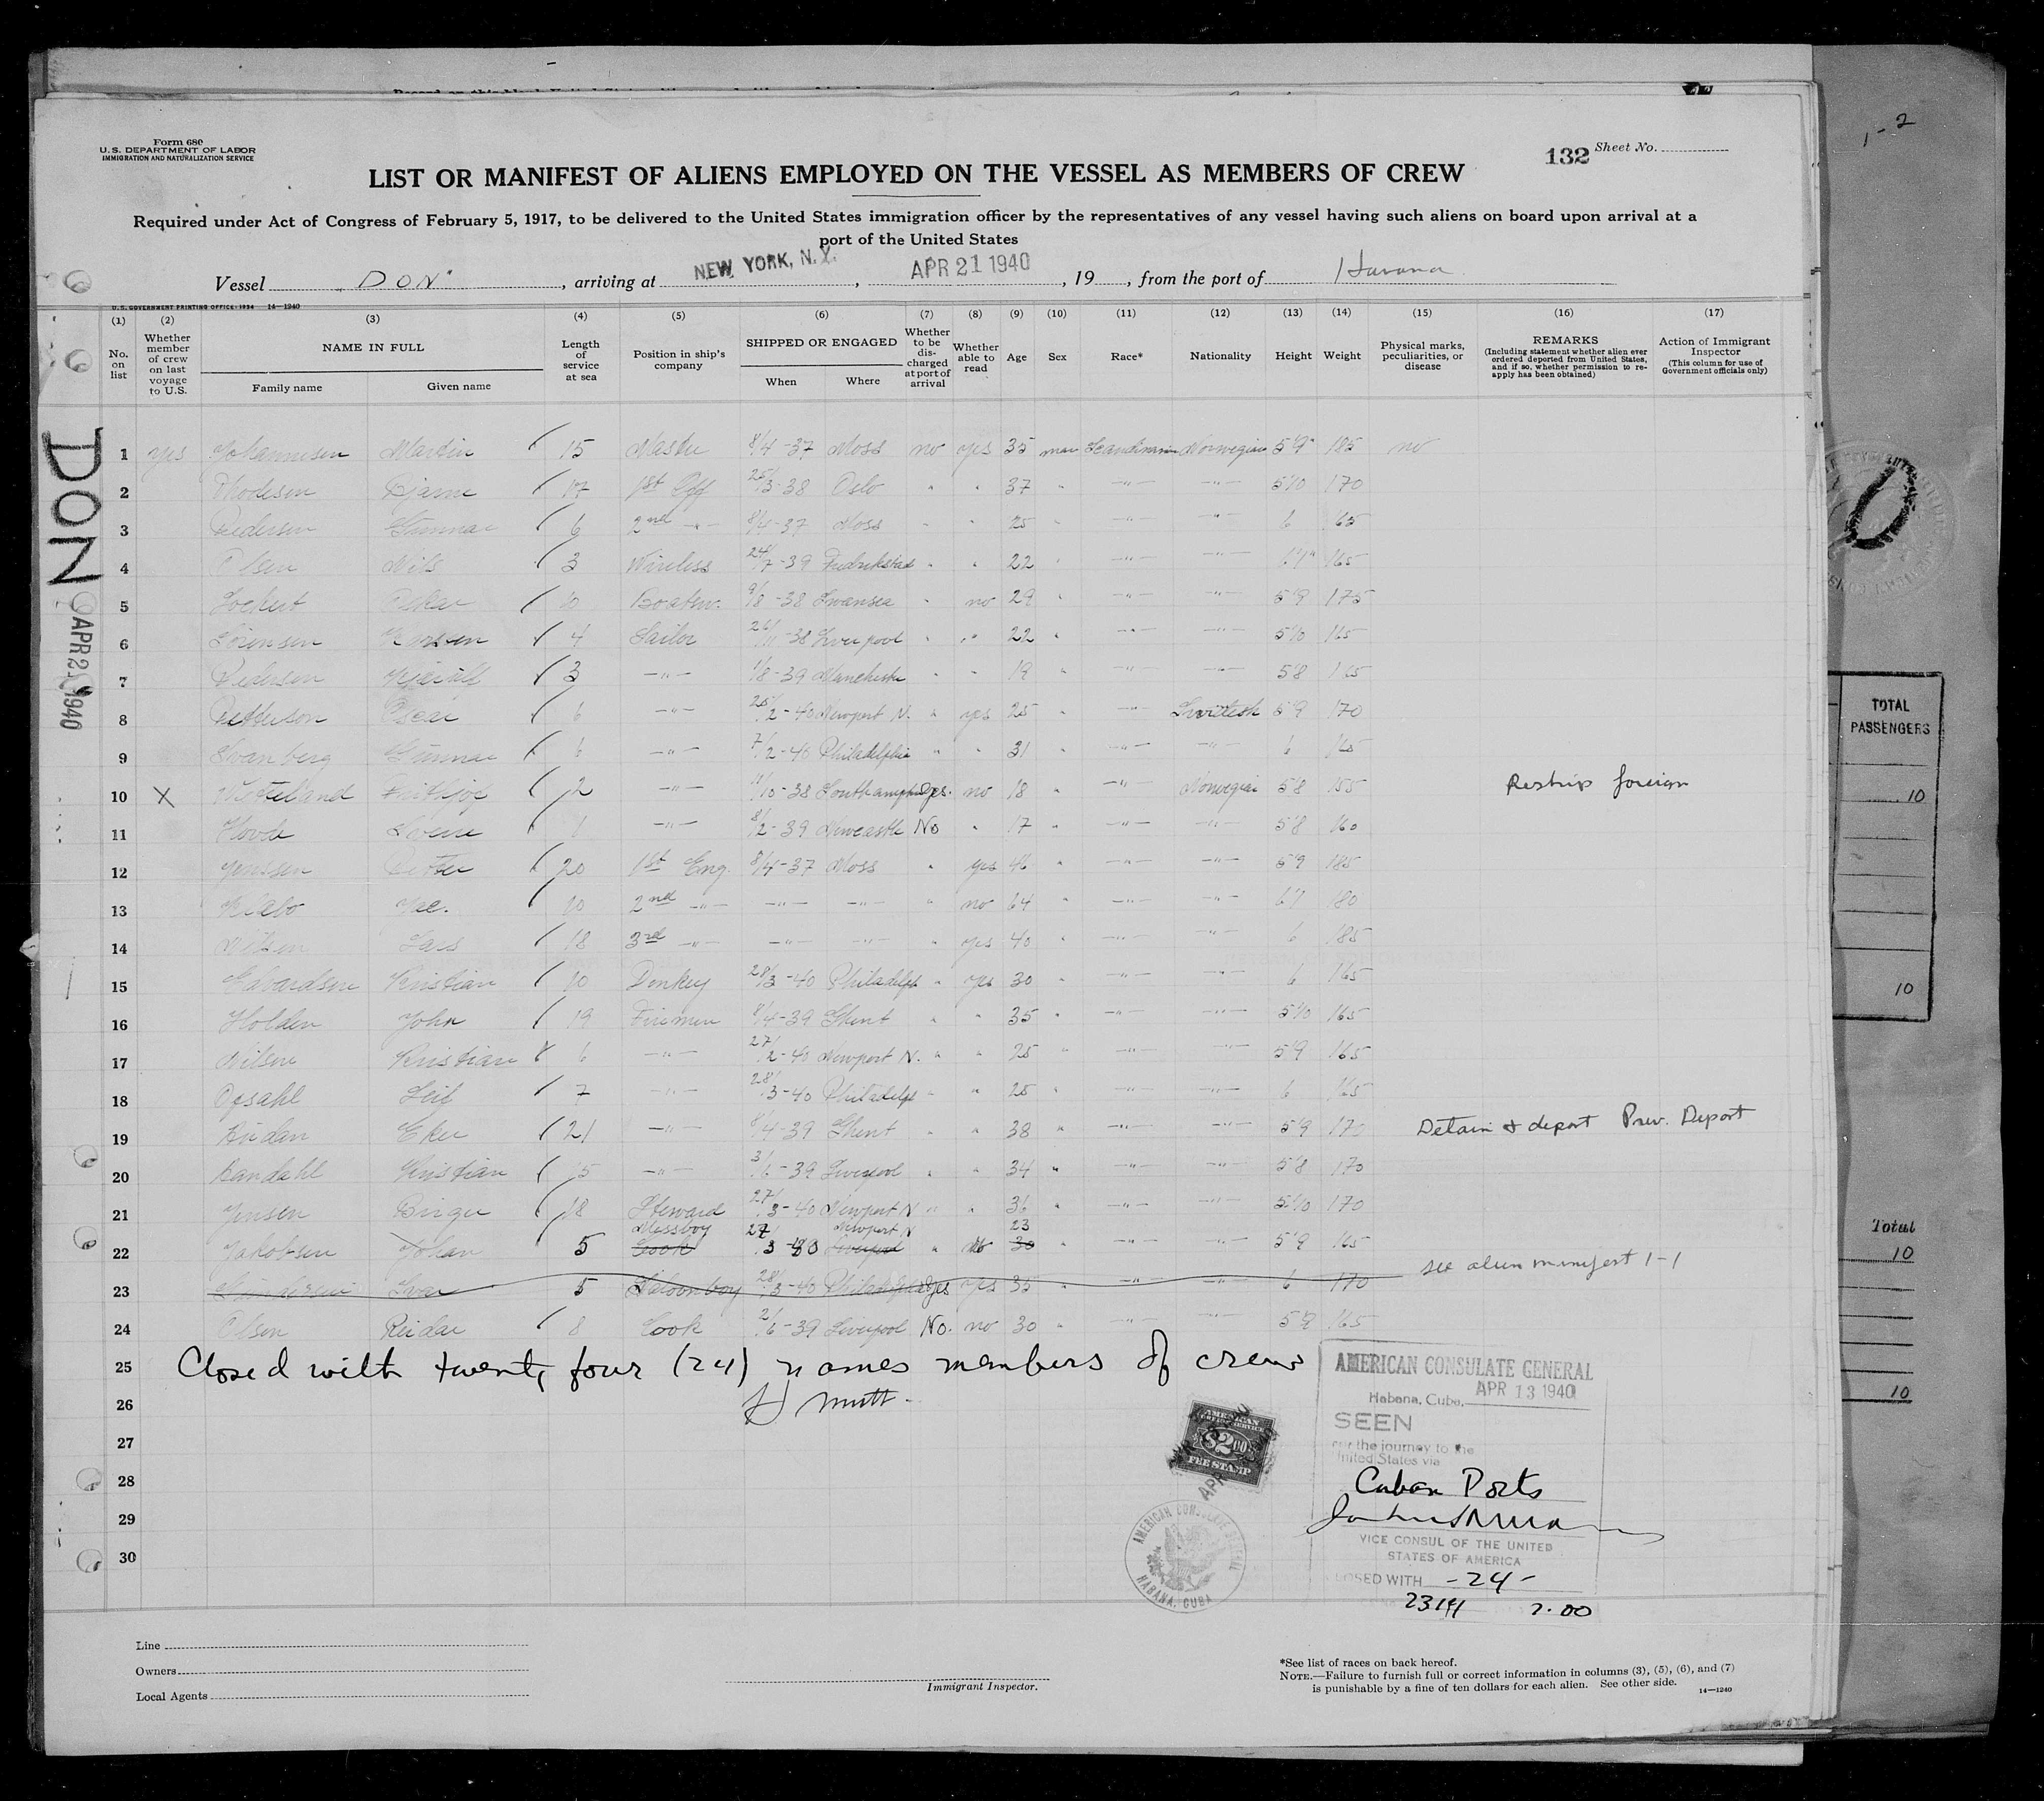 1-2
Form 680
U.S. DEPARTMENT OF LABOR
IMMIGRATION AND NATURALIZATION SERVICE
132 Sheet No.
LIST OR MANIFEST OF ALIENS EMPLOYED ON THE VESSEL AS MEMBERS OF CREW
Required under Act of Congress of February 5, 1917, to be delivered to the United States immigration officer by the representatives of any vessel having such aliens on board upon arrival at a
port of the United States
Vessel "DON", arriving at NEW YORK, N.Y., APR 21 1940, 19, from the port of Havana
U.S. GOVERNMENT PRINTING OFFICE: 1934 14—1240
(1) (2) (3) (4) (5) (6) (7) (8) (9) (10) (11) (12) (13) (14) (15) (16) (17)
No. on list
Whether member of crew on last voyage to U.S.
NAME IN FULL
Family name Given name
Length of service at sea
Position in ship's company
SHIPPED OR ENGAGED
When Where
Whether to be discharged at port of arrival
Whether able to read
Age
Sex
Race*
Nationality
Height
Weight
Physical marks, peculiarities, or disease
REMARKS
(Including statement whether alien ever ordered deported from United States, and if so, whether permission to re-apply has been obtained)
Action of Immigrant Inspector
(This column for use of Government officials only)
DON
APR 21 1940
1 yes Johannesen Martin 15 Master 8/4-37 Moss no yes 35 man Scandinavian Norwegian 5'9" 185 no
2 Bjarne 17 1st Off 25/3-38 Oslo " " 37 " -"- -"- 5'10 170
3 Pedersen Gunnar 6 2nd -"- 8/4-37 Moss " " 25 " -"- -"- 6 165
4 Olsen Nils 3 Wireless 24/7-39 Fredrikstad " " 22 " -"- -"- 165
5 Lockert Oskar 10 Boatsw. 9/8-38 Swansea " no 29 " -"- -"- 5'9 175
6 Sörensen Karsten 4 Sailor 26/11-38 Liverpool " " 22 " -"- -"- 5'10 165
7 Pedersen 3 -"- 1/8-39 Manchester " " 19 " -"- -"- 5'8 165
8 Petterson Oscar 6 -"- 25/2-40 Newport N. " yes 25 " -"- Swedish 5'9 170
9 Svanberg Gunnar 6 -"- 7/2-40 Philadelphia " " 31 " -"- -"- 6 165
10 X Frithjof 2 -"- 11/10-38 Southampton yes. no 18 " -"- Norwegian 5'8 155 Reship foreign
11 Hovde Sverre 1 -"- 8/2-39 Newcastle No " 17 " -"- -"- 5'8 160
12 Jenssen Petter 20 1st Eng. 8/4-37 Moss " yes 46 " -"- -"- 5'9 185
13 10 2nd -"- -"- -"- " no 64 " -"- -"- 6'1 180
14 Nilsen Lars 18 3rd -"- -"- -"- " yes 40 " -"- -"- 6 185
15 Kristian 10 Donkey 28/3-40 Philadelph " yes 30 " -"- -"- 6 165
16 Holden John 19 Firemen 8/4-39 Ghent " " 35 " -"- -"- 5'10 165
17 Nilsen Kristian 6 -"- 27/2-40 Newport N. " " 25 " -"- -"- 5'9 165
18 Opsahl Leif 7 -"- 28/3-40 Philadelph " " 25 " -"- -"- 6 165
19 21 -"- 8/4-39 Ghent " " 38 " -"- -"- 5'9 170 Detain & deport Prev. Deport
20 Sandahl Kristian 15 -"- 39 Liverpool " " 34 " -"- -"- 5'8 170
21 Jensen Birger 18 Steward 27/3-40 Newport N " " 36 " -"- -"- 5'10 170
Messboy 27 Newport N 23
22 Jakobsen Johan 5 Cook 3-40 Liverpool " no 30 -"- -"- 5'9 165
23 Ivar 5 Saloonboy 28/3-40 Philadelph yes yes 35 -"- -"- 6 170 see alien manifest 1-1
24 Olsen Reidar 8 Cook 2/6-39 Liverpool No. no 30 " -"- 5'9 165
25 Closed with twenty four (24) names members of crew
26
27
28
29
30
AMERICAN CONSULATE GENERAL
Habana, Cuba, APR 13 1940
SEEN
for the journey to the
United States via
Cuban Ports
VICE CONSUL OF THE UNITED
STATES OF AMERICA
CLOSED WITH -24-
2.00
AMERICAN
$2.00
FEE STAMP
AMERICAN CONSULATE GENERAL
HABANA, CUBA
Line
Owners
Local Agents
Immigrant Inspector.
*See list of races on back hereof.
NOTE.—Failure to furnish full or correct information in columns (3), (5), (6), and (7)
is punishable by a fine of ten dollars for each alien. See other side.
14—1240
TOTAL
PASSENGERS
10
10
Total
10
10